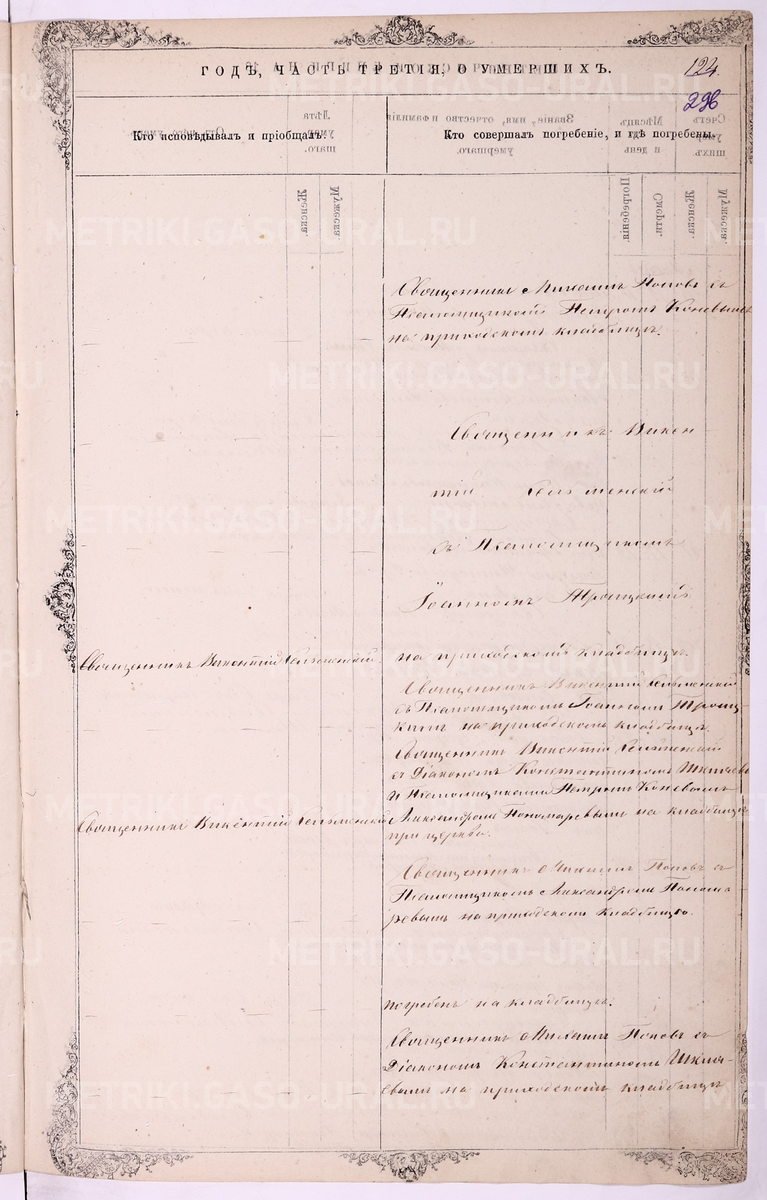 ГОДЪ, ЧАСТЬ ТРЕТІЯ, О УМЕРШИХЪ.
124
296
Кто исповѣдывалъ и пріобщалъ.
Кто совершалъ погребеніе, и гдѣ погребены.
Священникъ Михаилъ Поповъ съ
Псаломщикомъ Петромъ Коневымъ
на приходскомъ кладбищѣ.
Священникъ Викен
тій
съ Псаломщикомъ
Іоанномъ Троицкимъ
на приходскомъ кладбищѣ.
Священникъ Викентій
Священникъ Викентій
съ Псаломщикомъ Іоанномъ Троиц
кимъ на приходскомъ кладбищѣ.
Священникъ Викентій
съ Діакономъ Константиномъ
и Псаломщиками Петромъ Коневымъ
Александромъ Пономаревымъ на кладбищѣ
при церкви.
Священникъ Викентій
Священникъ Михаилъ Поповъ съ
Псаломщикомъ Александромъ Понома
ревымъ на приходскомъ кладбищѣ.
погребенъ на кладбищѣ.
Священникъ Михаилъ Поповъ съ
Діакономъ Константиномъ
на приходскомъ кладбищѣ
METRIKI.GASO-URAL.RU